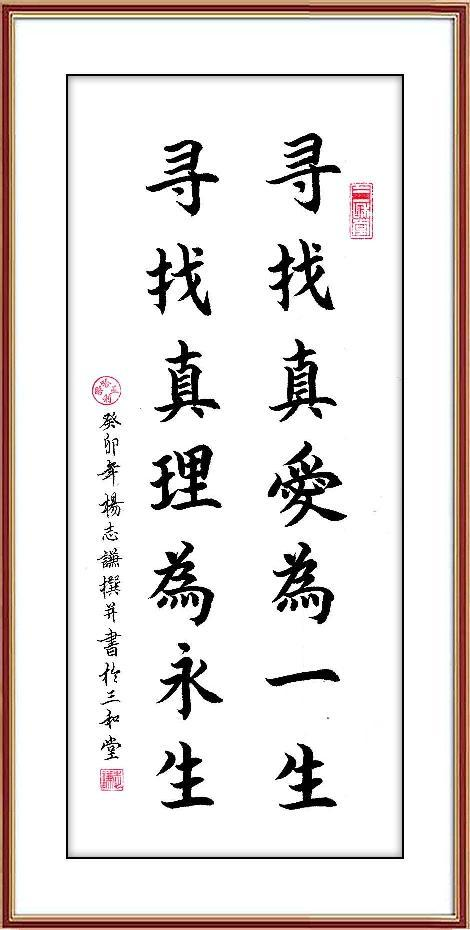 寻找真愛為一生
寻找真理為永生
癸卯年楊志謙撰并書於三和堂